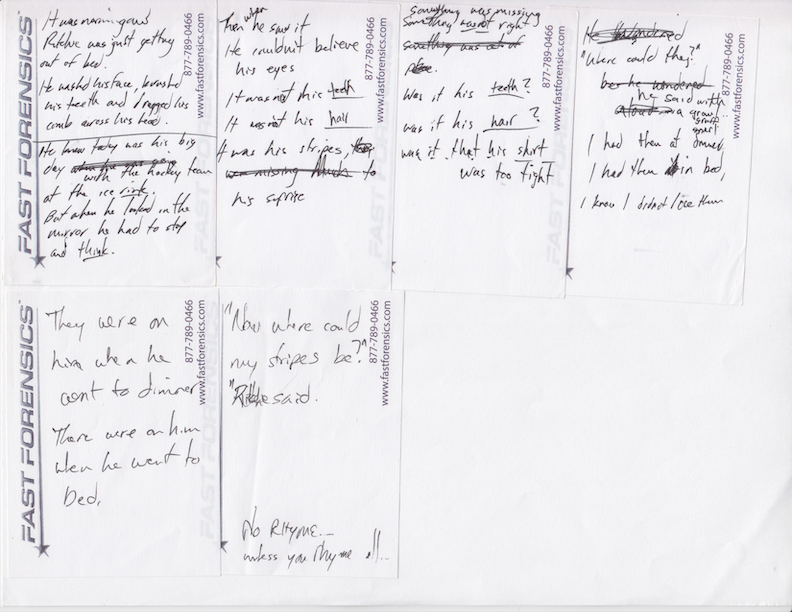 FAST FORENSICS
877-789-0466
www.fastforensics.com
It was morning and
Ritchie was just getting
out of bed.
He washed his face, brushed
his teeth and dragged his
comb across his head.
He knew today was his big
day when he was
with the hockey team
at the ice rink.
But when he looked in the
mirror he had to stop
and think.
FAST FORENSICS
877-789-0466
www.fastforensics.com
Then when he saw it
He couldnit believe
his eyes
It was not his teeth
It was not his hair
It was his stripes,
were missing Much to
his suprise
FAST FORENSICS
877-789-0466
www.fastforensics.com
Something was missing
Something was not right
Something was out of
place.
was it his teeth?
was it his hair?
was it that his shirt
was too tight
FAST FORENSICS
877-789-0466
www.fastforensics.com
He
"Where could they?"
he wondered
he said with
aloud a grow
I had them at dinner
I had them in bed,
I know I didnot lose them
FAST FORENSICS
877-789-0466
www.fastforensics.com
They were on
him when he
went to dinner
There were on him
when he went to
bed,
FAST FORENSICS
877-789-0466
www.fastforensics.com
"Now where could
my stripes be?"
"Ritchie said.
No Rhyme...
unless you rhyme all...